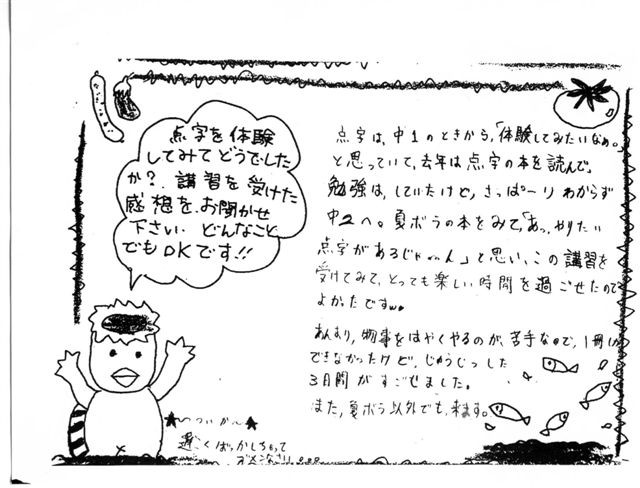 点字を体験
してみてどうでした
か？講習を受けた
感想をお聞かせ
下さい どんなこと
でもOKです!!
点字は、中1のときから、「体験してみたいなぁ。」
と思っていて、去年は点字の本を読んで、
勉強は、していたけど、さっぱーりわからず
中2へ。夏ボラの本をみて、「あっ、やりたい
点字があるじゃん」と思い、この講習を
受けてみて、とっても楽しい時間を過ごせたので
よかったです。
あんまり、物事をはやくやるのが、苦手なので、1冊しか
できなかったけど、じゅうじつした
3日間がすごせました。
また、夏ボラ以外でも、来ます。
遅くばっかしちゃって
ゴメンなさい。。。